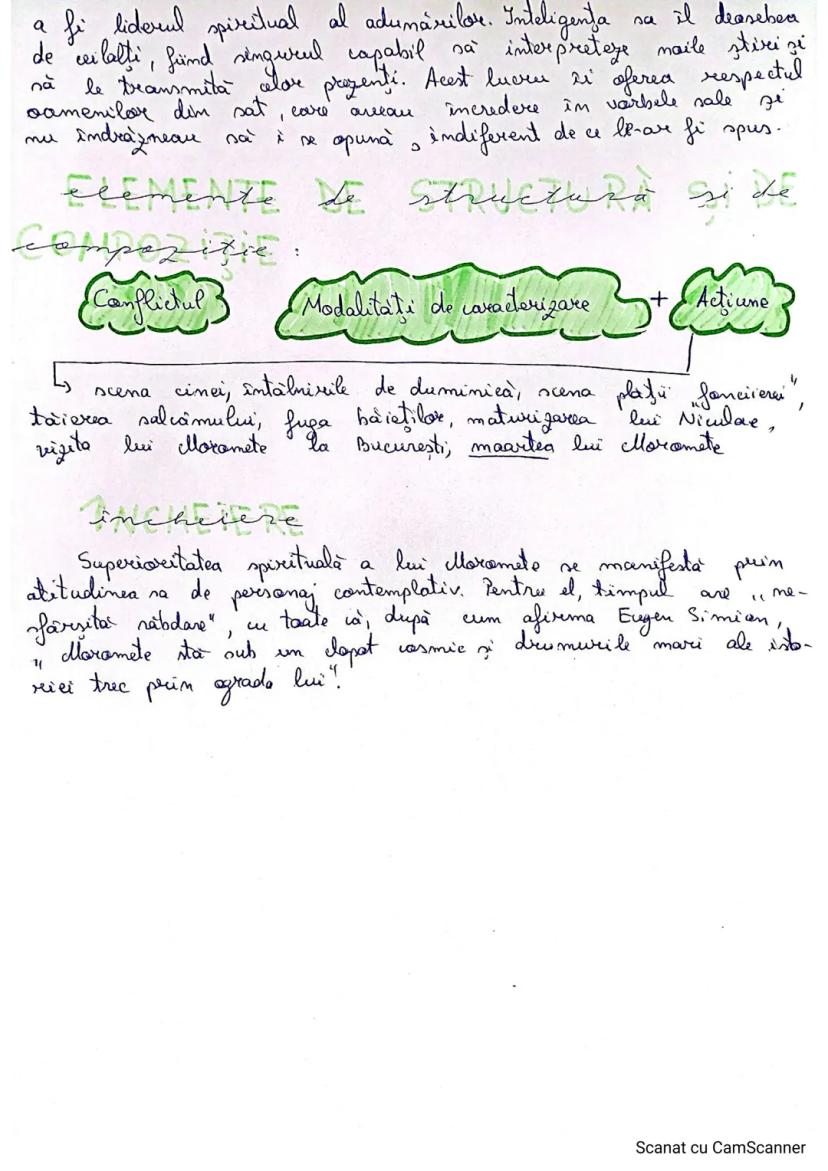 a fi liderul spiritual al adunărilor. Inteligența sa îl deosebea
de ceilalți, fiind singurul capabil să interpreteze noile știri și
să le transmită celor prezenți. Acest lucru îi oferea respectul
oamenilor din sat, care aveau încredere în vorbele sale și
nu îndrăzneau să i se opună, indiferent de ce le-ar fi spus.
elemente de structură și de
compoziție :
Conflictul Modalități de caracterizare + Acțiune
scena cinei, întâlnirile de duminică, scena plății „fonciirei",
tăierea salcâmului, fuga băieților, maturizarea lui Niculae,
vizita lui Moromete la București, moartea lui Moromete
încheiere
Superioritatea spirituală a lui Moromete se manifestă prin
atitudinea sa de personaj contemplativ. Pentru el, timpul are „ne-
sfârșită răbdare", cu toate că, după cum afirma Eugen Simion,
„Moromete stă sub un clopot cosmic și drumurile mari ale isto-
riei trec prin ograda lui".
Scanat cu CamScanner